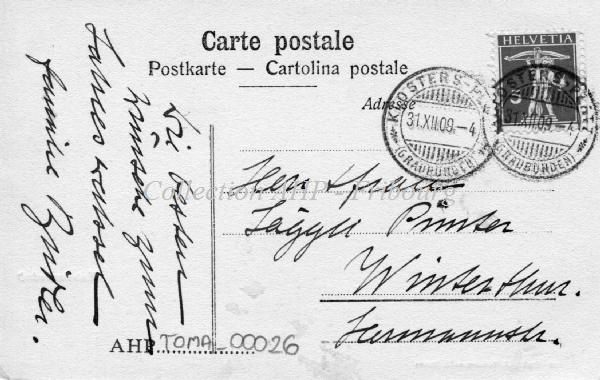 Carte postale
Postkarte — Cartolina postale
Adresse
HELVETIA
5
KLOSTERS-PLATZ
31.XII.09.-4
(GRAUBÜNDEN)
KLOSTERS-PLATZ
31.XII.09.-4
(GRAUBÜNDEN)
Die besten
Wünsche zum
Jahreswechsel
Familie
Herr & Frau
Jäggli Pünter
Winterthur.
Hermannstr.
Collection AHP - Fribourg
AHP TOMA_00026